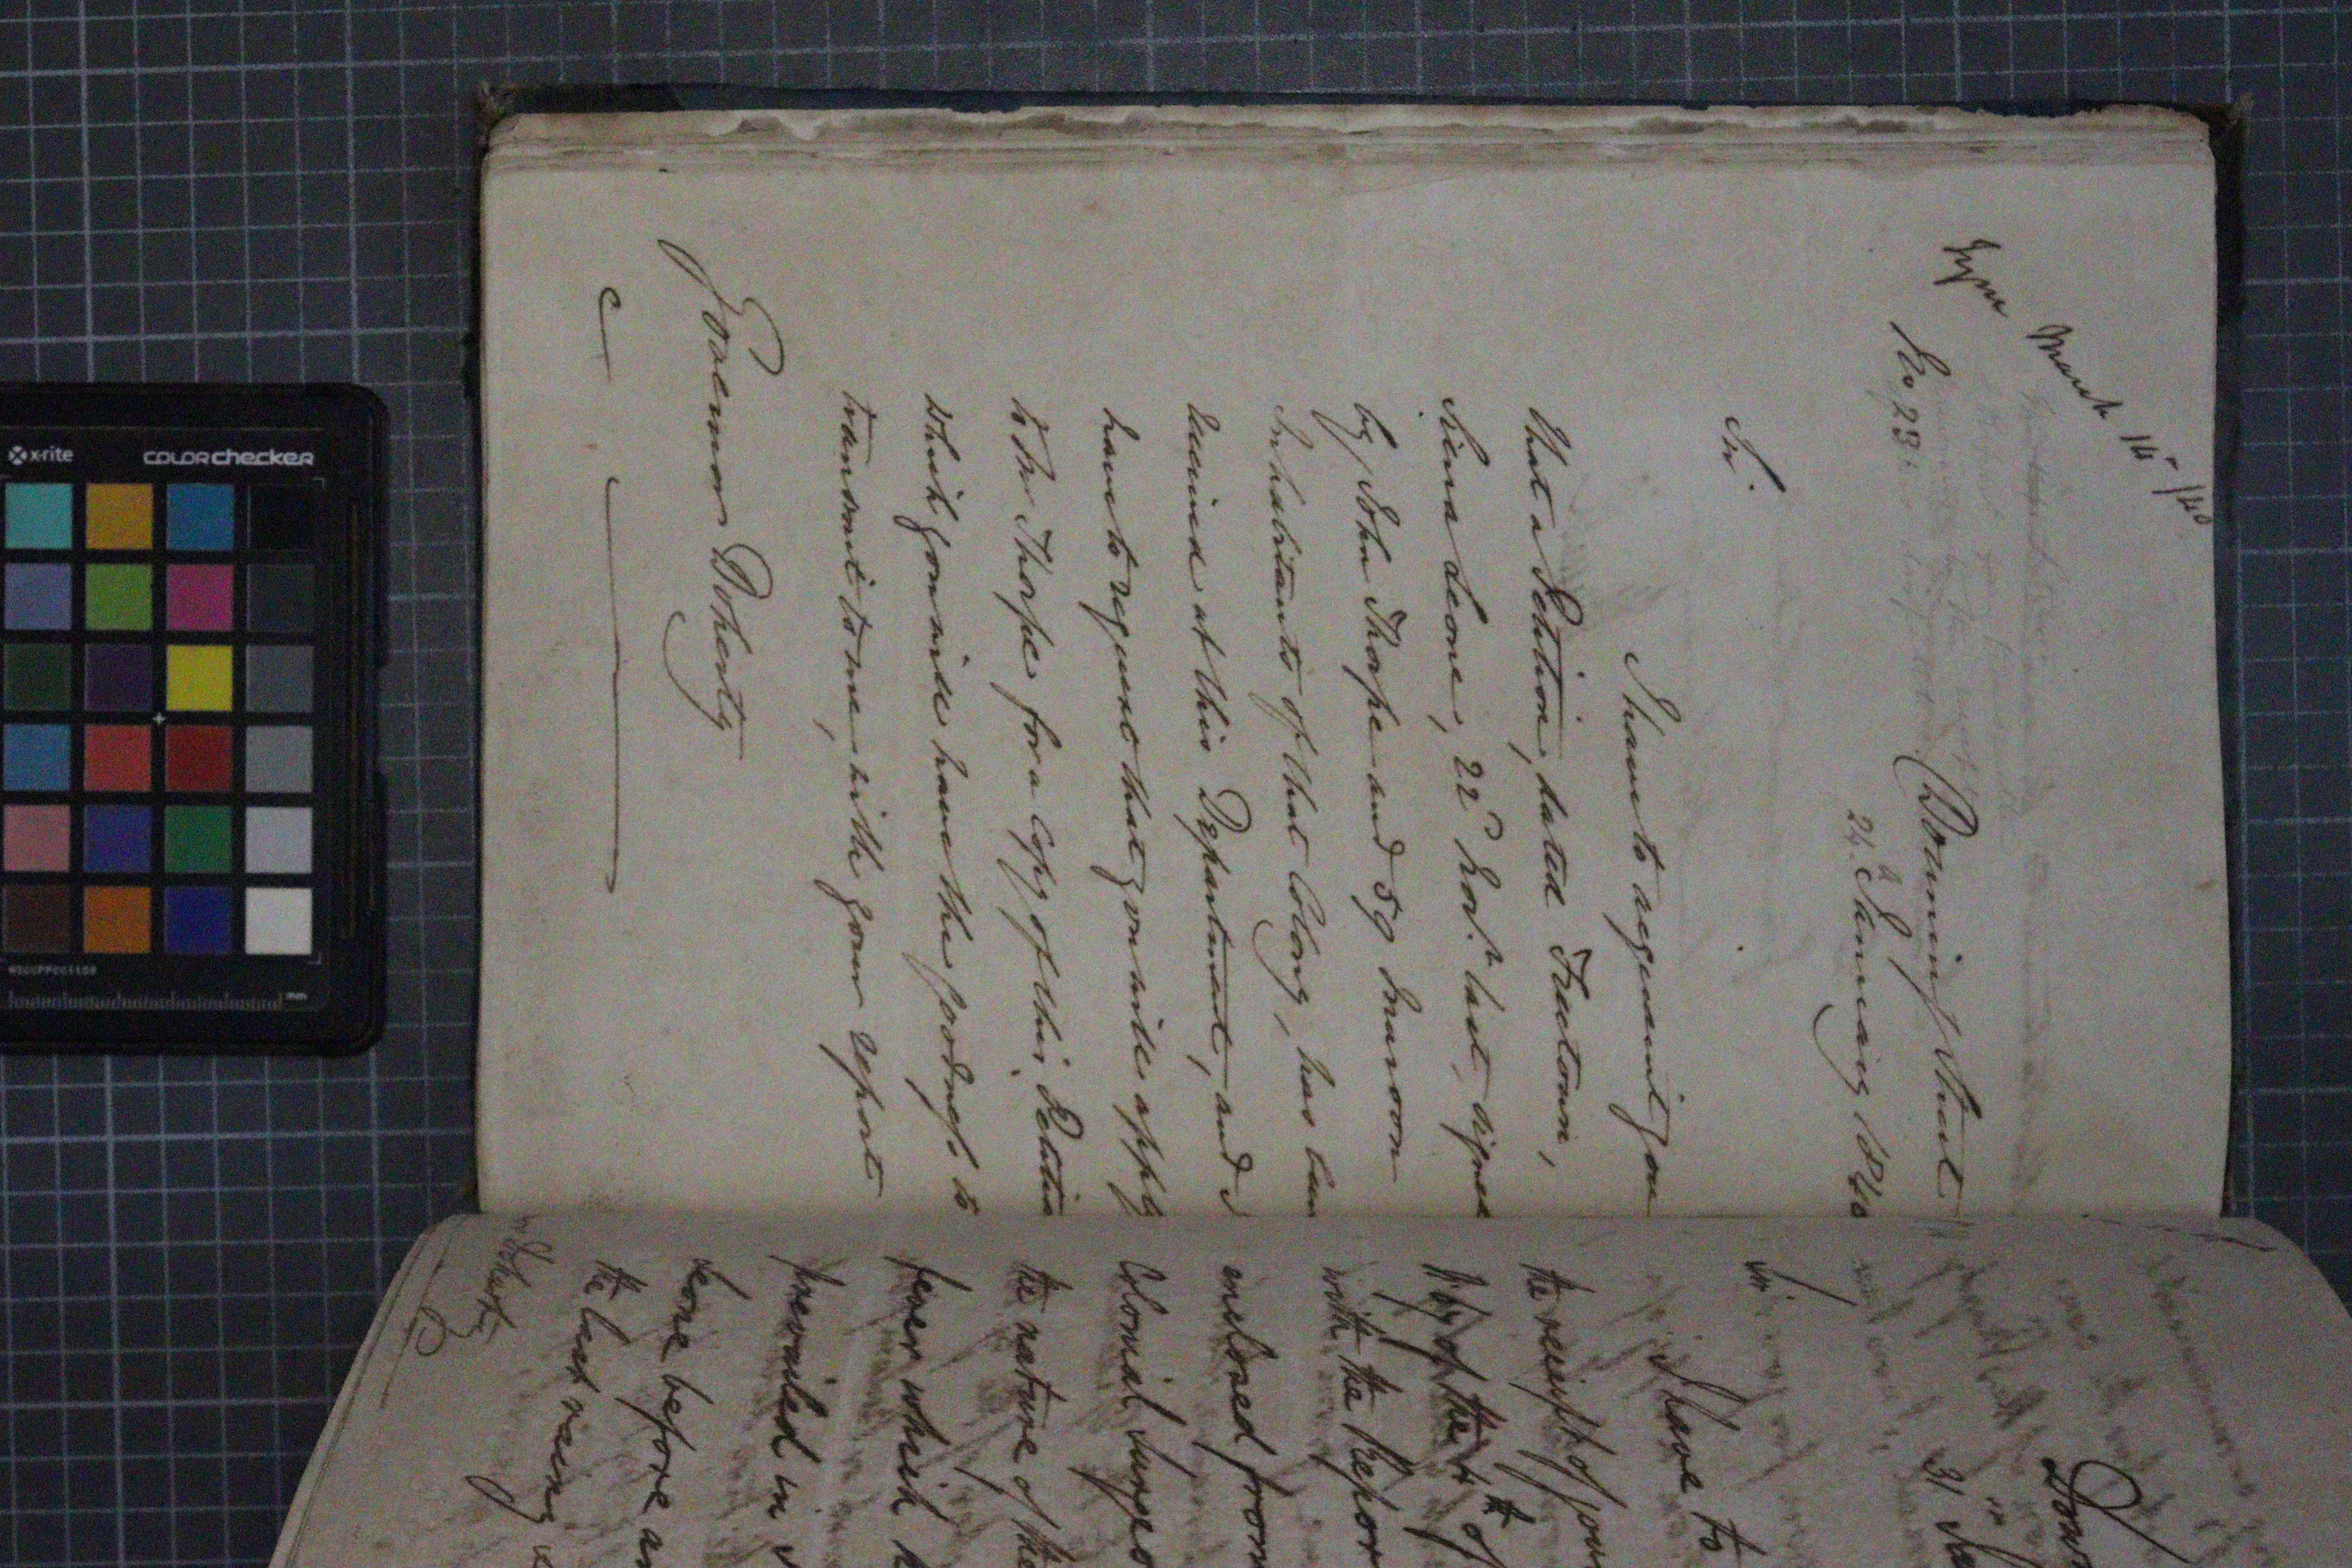 March 14th /40
No 23.
Downing Street
24th January 1840
Sir.
I have to acquaint you
that a Petition, dated Freetown,
Sierra Leone, 22d Novr. last, signed
by John Thorpe and 59 Maroon
Inhabitants of that Colony, has been
received at this Department, and I
have to request that you will apply
to Mr Thorpe for a Copy of this Petition
which you will have the goodness to
transmit to me, with your report
Governor Doherty
Dow
31 Ja
Sir
I have to
the receipt of your
of the 4th of
with the Repor
enclosed from
Colonial Surgeo
the nature of the
fever which h
prevailed in S
Leone before an
the last rainy
Doherty
x-rite
colorchecker
mm